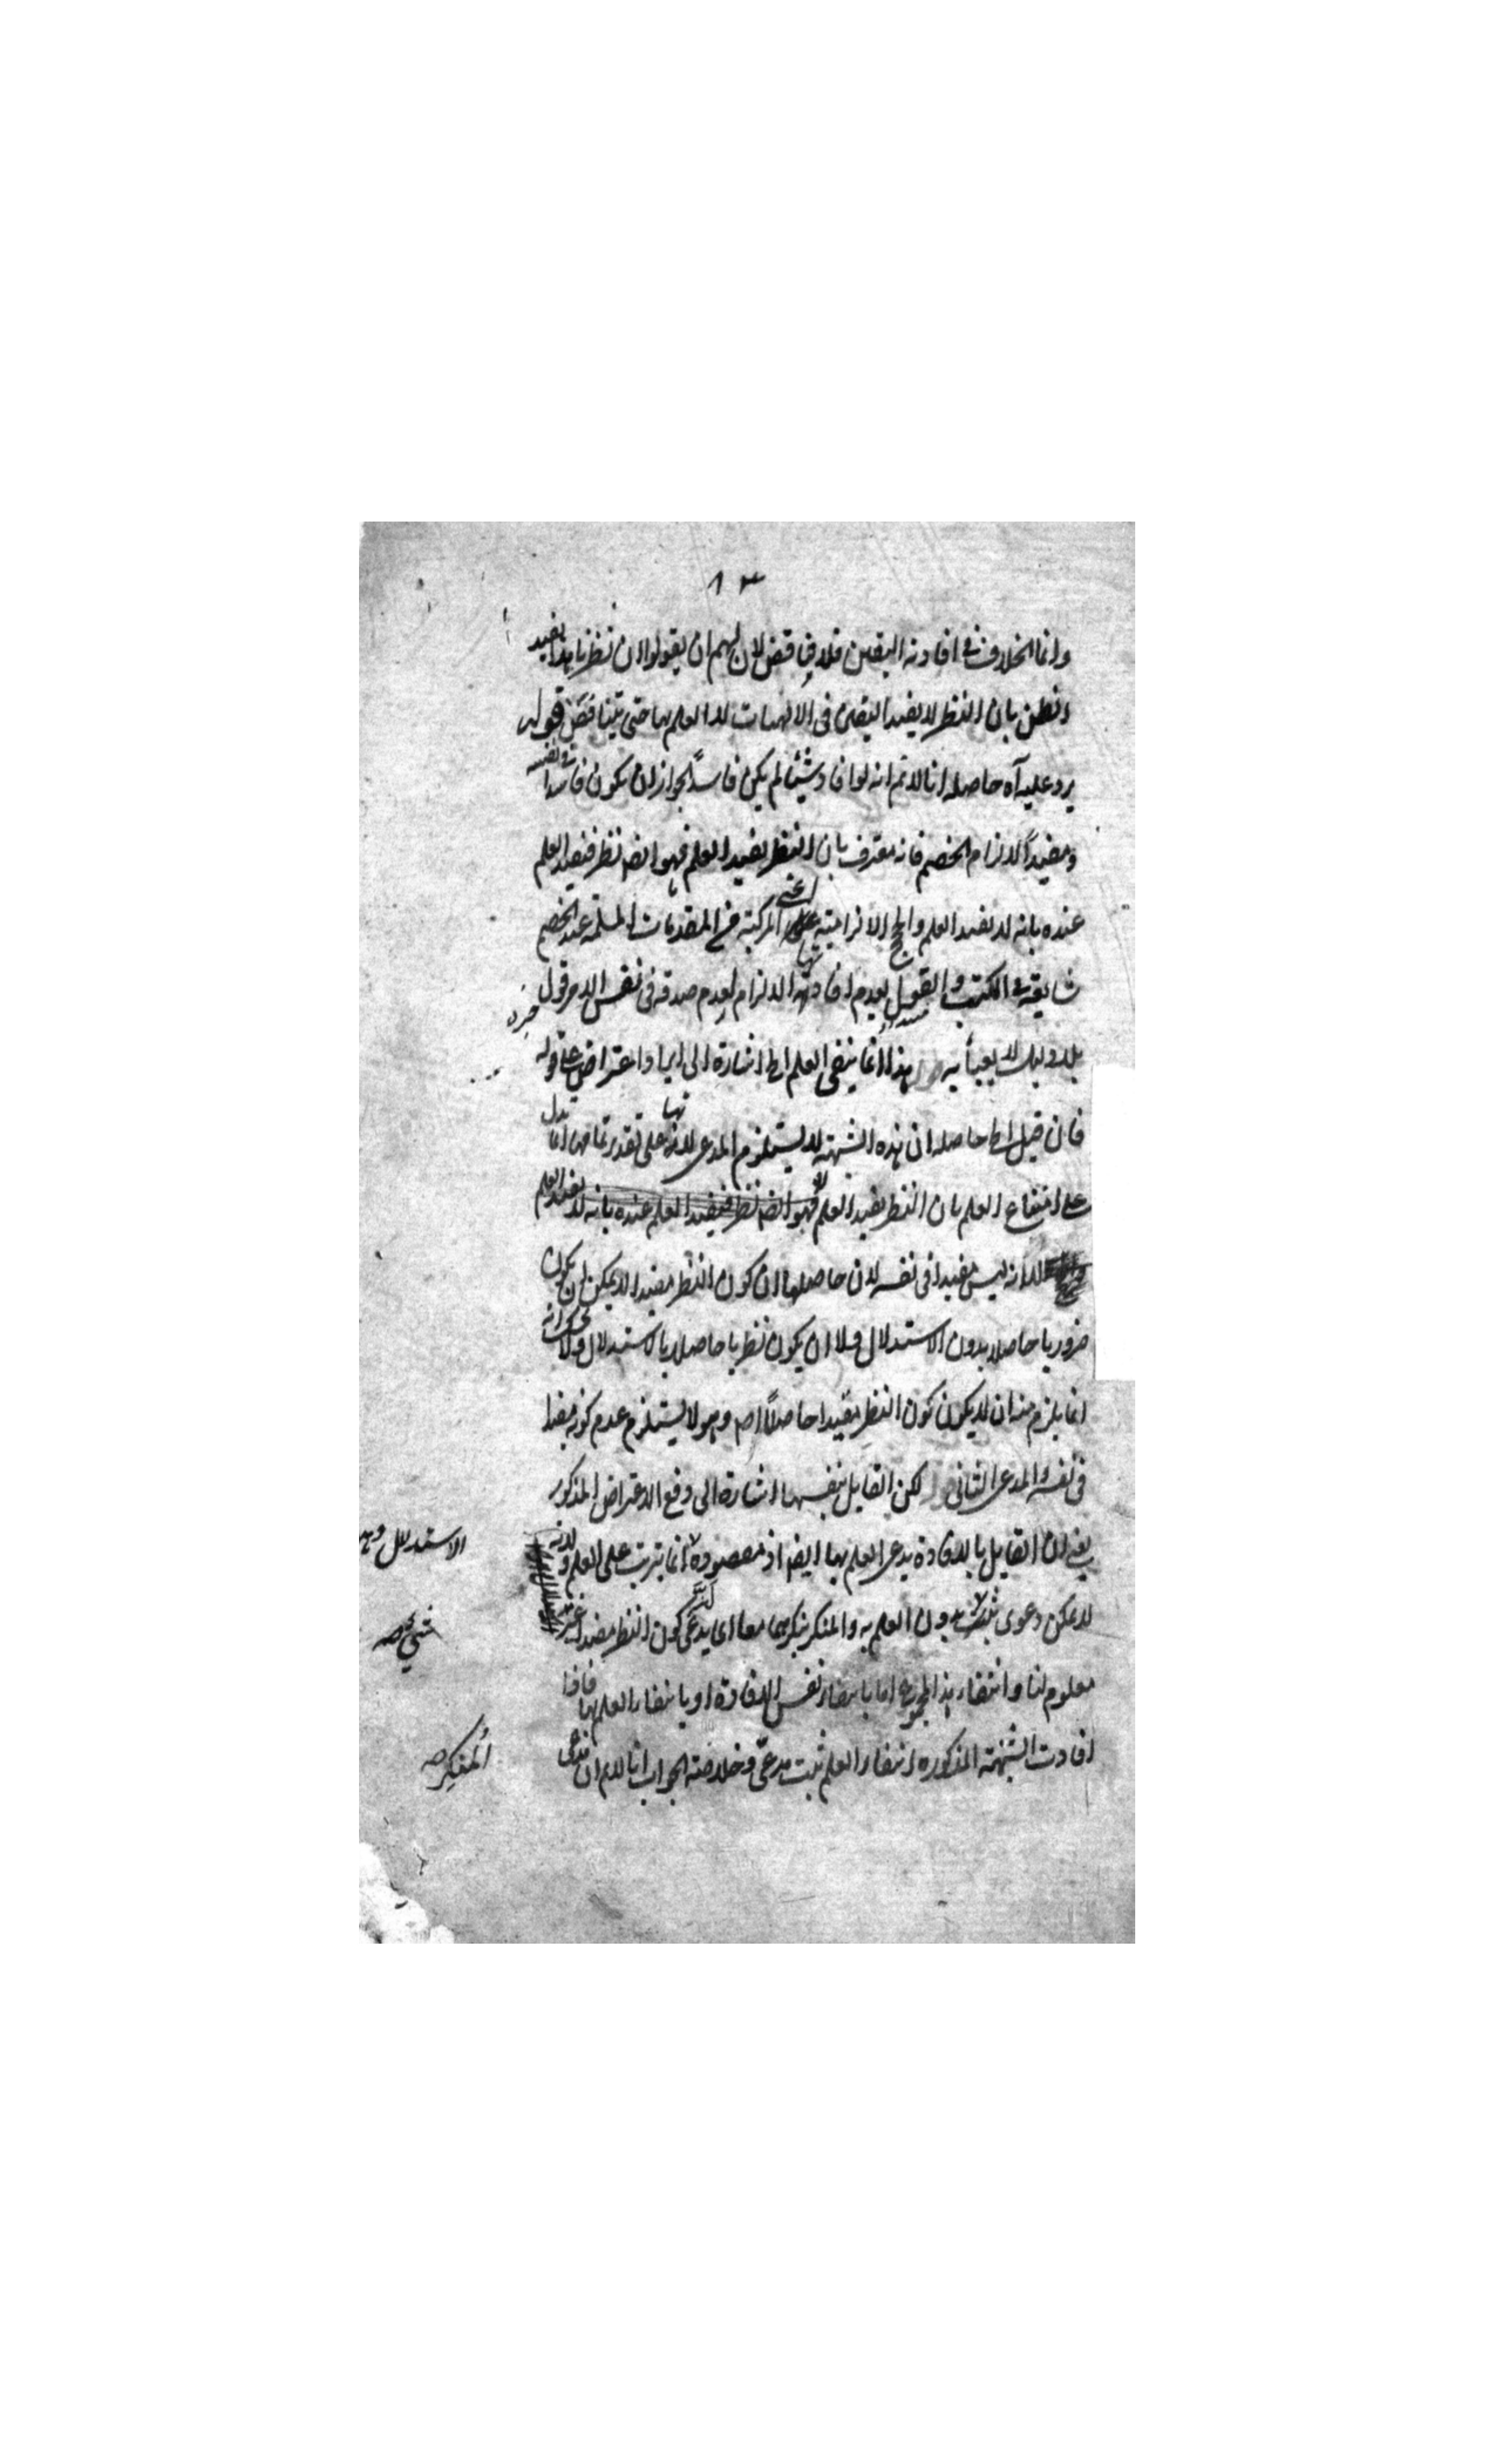 ١٣
وانما الخلاف في افادته اليقين فلا يناقض لان لهم ان يقولوا ان نظرنا هذا يفيد
الظن بان النظر لا يفيد اليقين في الالهيات لا العلم بها حتى يتناقض قوله
يرد عليه آه حاصله انا لا نم انه لو افاد شيئا لم يكن فاسدًا لجواز ان يكون فاسدا في نفسه
ومفيدًا لالزام الخصم فانه معترف بان النظر يفيد العلم فهو ايضا نظر فيفيد العلم
عنده بانه لا يفيد العلم والحجج الالزامية اعني المركبة من المقدمات المسلمة عند الخصم
شايعة في الكتب والقول بعدم افادتها الالزام لعدم صدقه في نفس الامر قول
بلا دليل لا يعبأ به قوله هذا انما ينفي العلم الخ اشارة الى ايراد اعتراض على قوله
فان قيل الخ حاصله ان هذه الشبهة لا يستلزم المدعى لانها على تقدير تمامها انما تدل
على امتناع العلم بان النظر يفيد العلم فهو ايضا نظر فيفيد العلم عنده بانه لا يفيد العلم
لا انه ليس مفيدا في نفسه لان حاصلها ان كون النظر مفيدا لا يمكن ان يكون
ضروريا حاصلا بدون الاستدلال ولا ان يكون نظريا حاصلا بالاستدلال ولا شك انه
انما يلزم منه ان لا يكون كون النظر مفيدا حاصلًا وهو لا يستلزم عدم كونه مفيدا
في نفسه والمدعى الثاني قوله لكن القايل بنفسها اشارة الى دفع الاعتراض المذكور
يعني ان القايل بالافادة يدعي العلم بها ايضا اذ مقصوده انما يترتب على العلم ولانه
لا يمكن دعوى بدون العلم به والمنكر ينكرهما معا اي يدعي كون النظر مفيدا غير
معلوم لنا وانتفاء هذا المجموع اما بانتفاء نفس الافادة او بانتفاء العلم بها فاذا
افادت الشبهة المذكورة انتفاء العلم ثبت مدعى وخلاصة الجواب انا لا نم ان ندعي
الاستدلال
شيء صح
المنكر صح